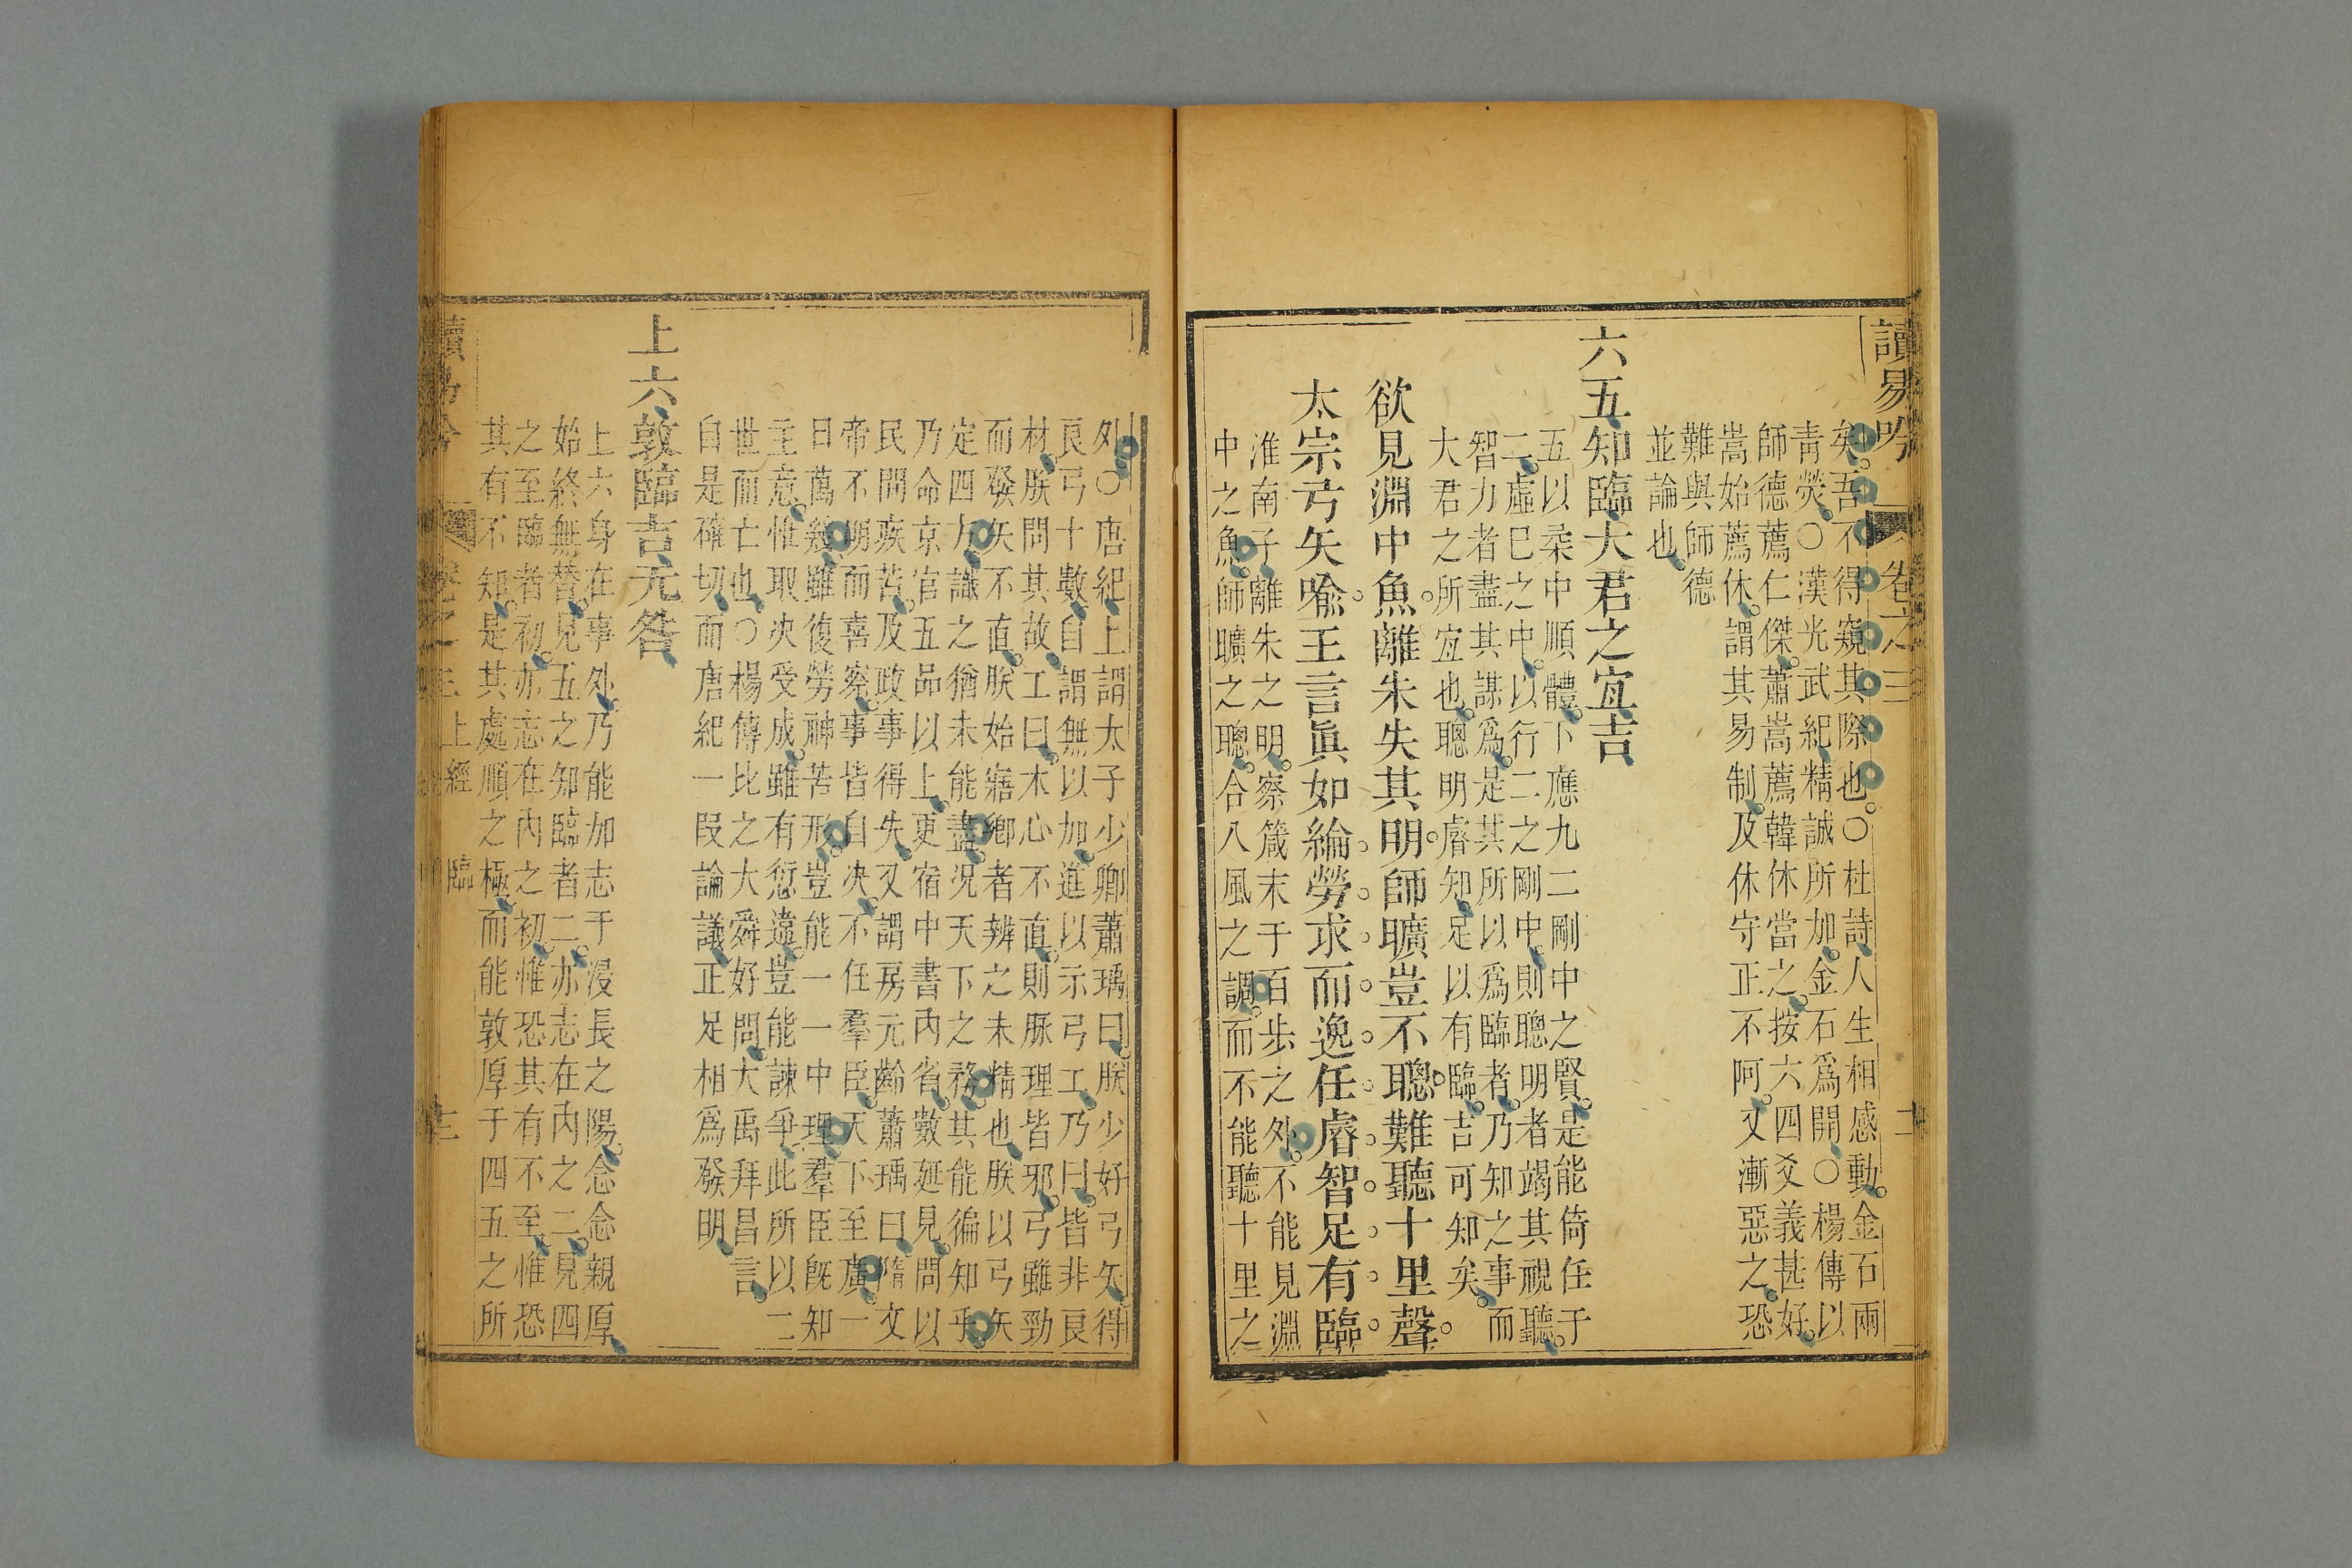 讀易吟 卷之三 二
矣吾不得窺其際也○杜詩人生相感動金石兩
青熒○漢光武紀精誠所加金石爲開○楊傳以
師德薦仁傑蕭嵩薦韓休當之按六四爻義甚好
嵩始薦休謂其易制及休守正不阿又漸惡之恐
難與師德
並論也
六五知臨大君之宜吉
五以柔中順體下應九二剛中之賢是能倚任于
二虛巳之中以行二之剛中則聰明者竭其視聽
智力者盡其謀爲是其所以爲臨者乃知之事而
大君之所宜也聰明睿知足以有臨吉可知矣
欲見淵中魚離朱失其明師曠豈不聰難聽十里聲
太宗弓矢喻王言眞如綸勞求而逸任睿智足有臨
淮南子離朱之明察箴末于百步之外不能見淵
中之魚師曠之聰合八風之調而不能聽十里之
外○唐紀上謂太子少卿蕭瑀曰朕少好弓矢得
良弓十數自謂無以加進以示弓工乃曰皆非良
材朕問其故工曰木心不直則脈理皆邪弓雖勁
而發矢不直朕始寤鄉者辨之未精也朕以弓矢
定四方識之猶未能盡況天下之務其能徧知乎
乃命京官五品以上更宿中書內省數延見問以
民間疾苦及政事得失又謂房元齡蕭瑀曰隋文
帝不明而喜察事皆自決不任羣臣天下至廣一
日萬幾雖復勞神苦形豈能一一中理羣臣旣知
主意惟取決受成雖有愆違豈能諫爭此所以二
世而亡也○楊傳比之大舜好問大禹拜昌言
自是確切而唐紀一段論議正足相爲發明
上六敦臨吉无咎
上六身在事外乃能加志于浸長之陽念念親厚
始終無替見五之知臨者二亦志在內之二見四
之至臨者初亦志在內之初惟恐其有不至惟恐
其有不知是其處順之極而能敦厚于四五之所
讀易吟 卷之三 上經 臨 三